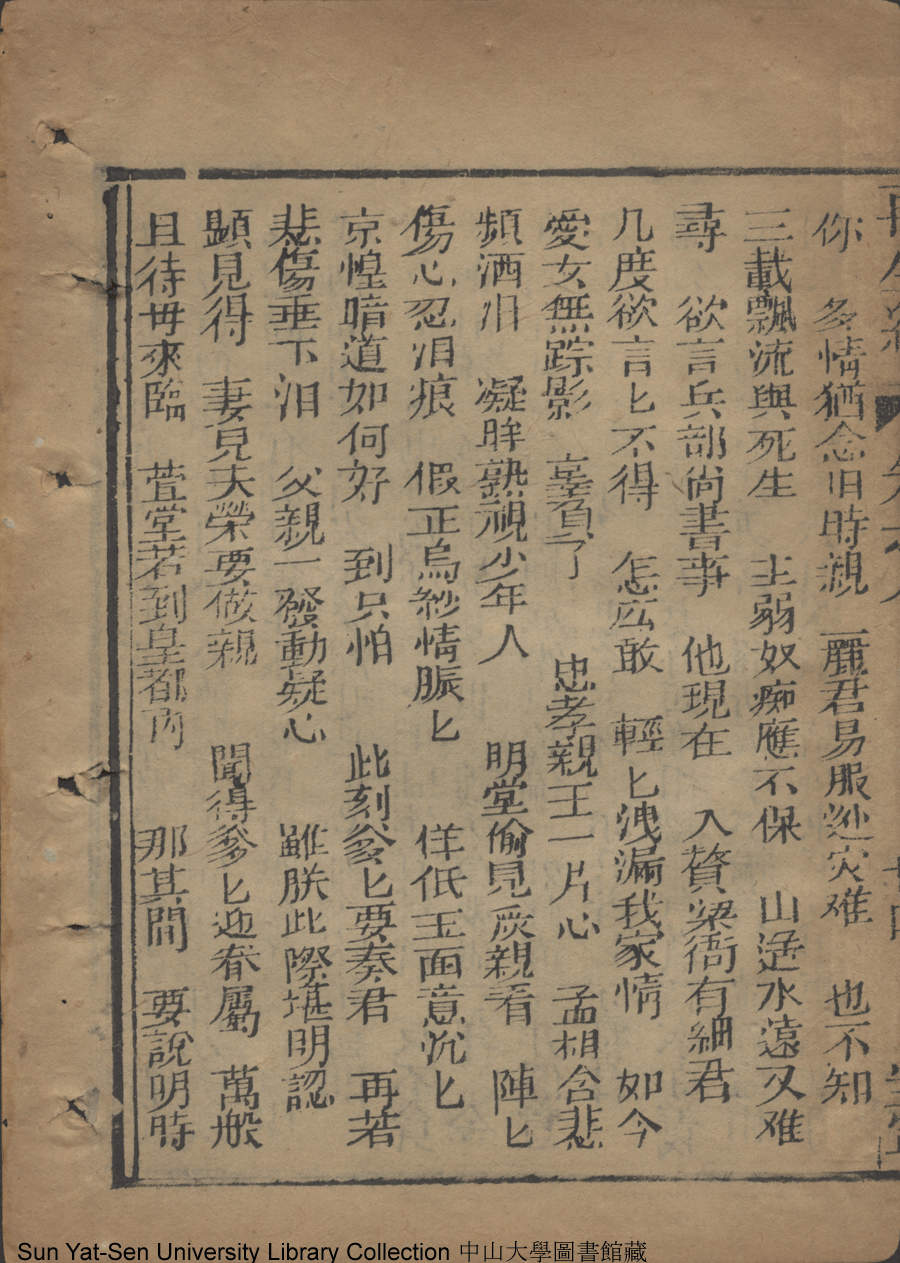 你　多情猶念旧時親　麗君易服迯灾难　也不知
三載飄流與死生　主弱奴痴應不保　山遥水遠又难
尋　欲言兵部尚書事　他現在　入贅梁衙有細君
几度欲言匕不得　怎広敢　輕匕洩漏我家情　如今
愛女無踪影　辜負了　忠孝親王一片心　孟相含悲
頻洒泪　凝眸熟視少年人　明堂偷見灰親看　陣匕
傷心忍泪痕　假正烏紗情脈匕　佯低玉面意沉匕
京惶暗道如何好　到只怕　此刻爹匕要奏君　再若
悲傷垂下泪　父親一發動疑心　雖朕此際堪明認
顕見得　妻見夫榮要做親　聞得爹匕迎眷屬　萬般
且待毋來臨　萱堂若到皇都内　那其間　要說明時
Sun Yat-Sen University Library Collection 中山大學圖書館藏